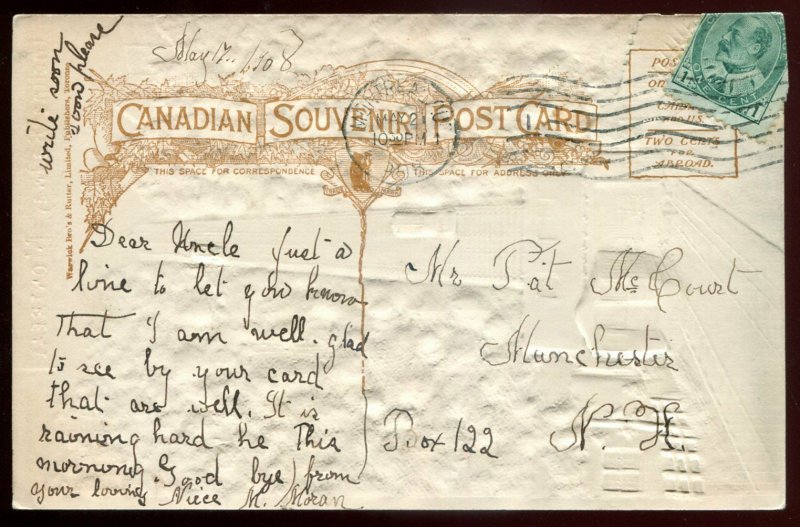 write soon
soon please
May 17. 1908
CANADIAN SOUVENIR POST CARD
THIS SPACE FOR CORRESPONDENCE
THIS SPACE FOR ADDRESS ONLY
Warwick Bro's & Rutter, Limited, Publishers, Toronto.
MONTREAL
10
PM
POS
ON
CAN
& U.S.
TWO CENTS
FOR
ABROAD.
POSTAGE
ONE CENT
1
Dear Uncle Just a
line to let you know
that I am well. glad
to see by your card
that are well. It is
raoning hard he this
mornong. Good bye from
your loving Niece M. Moran
Mr Pat McCourt
Manchester
Box 122 N. H.